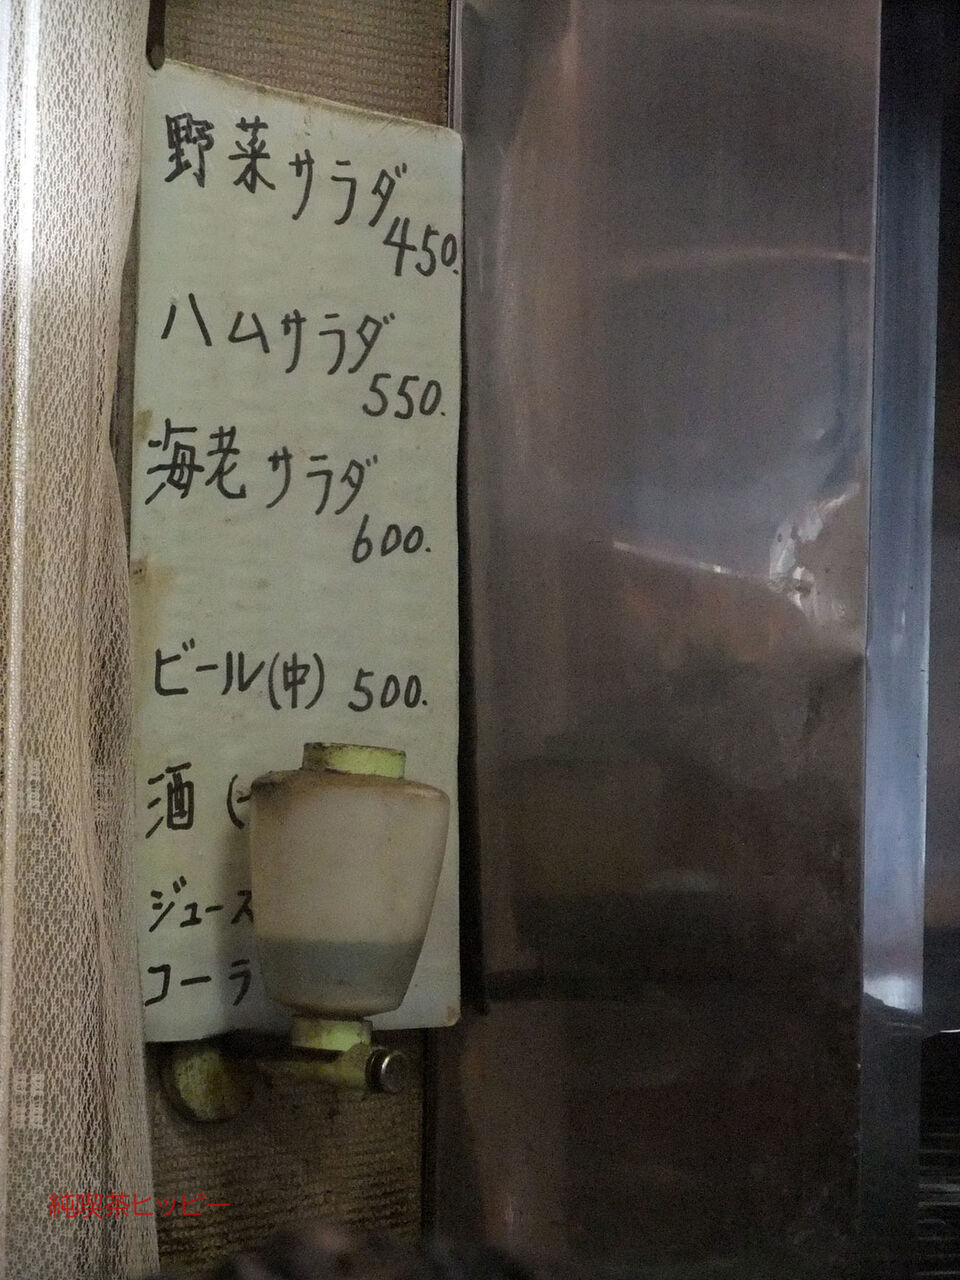 野菜サラダ
450.
ハムサラダ
550.
海老サラダ
600.
ビール(中) 500.
酒 (
ジュース
コーラ
純喫茶ヒッピー